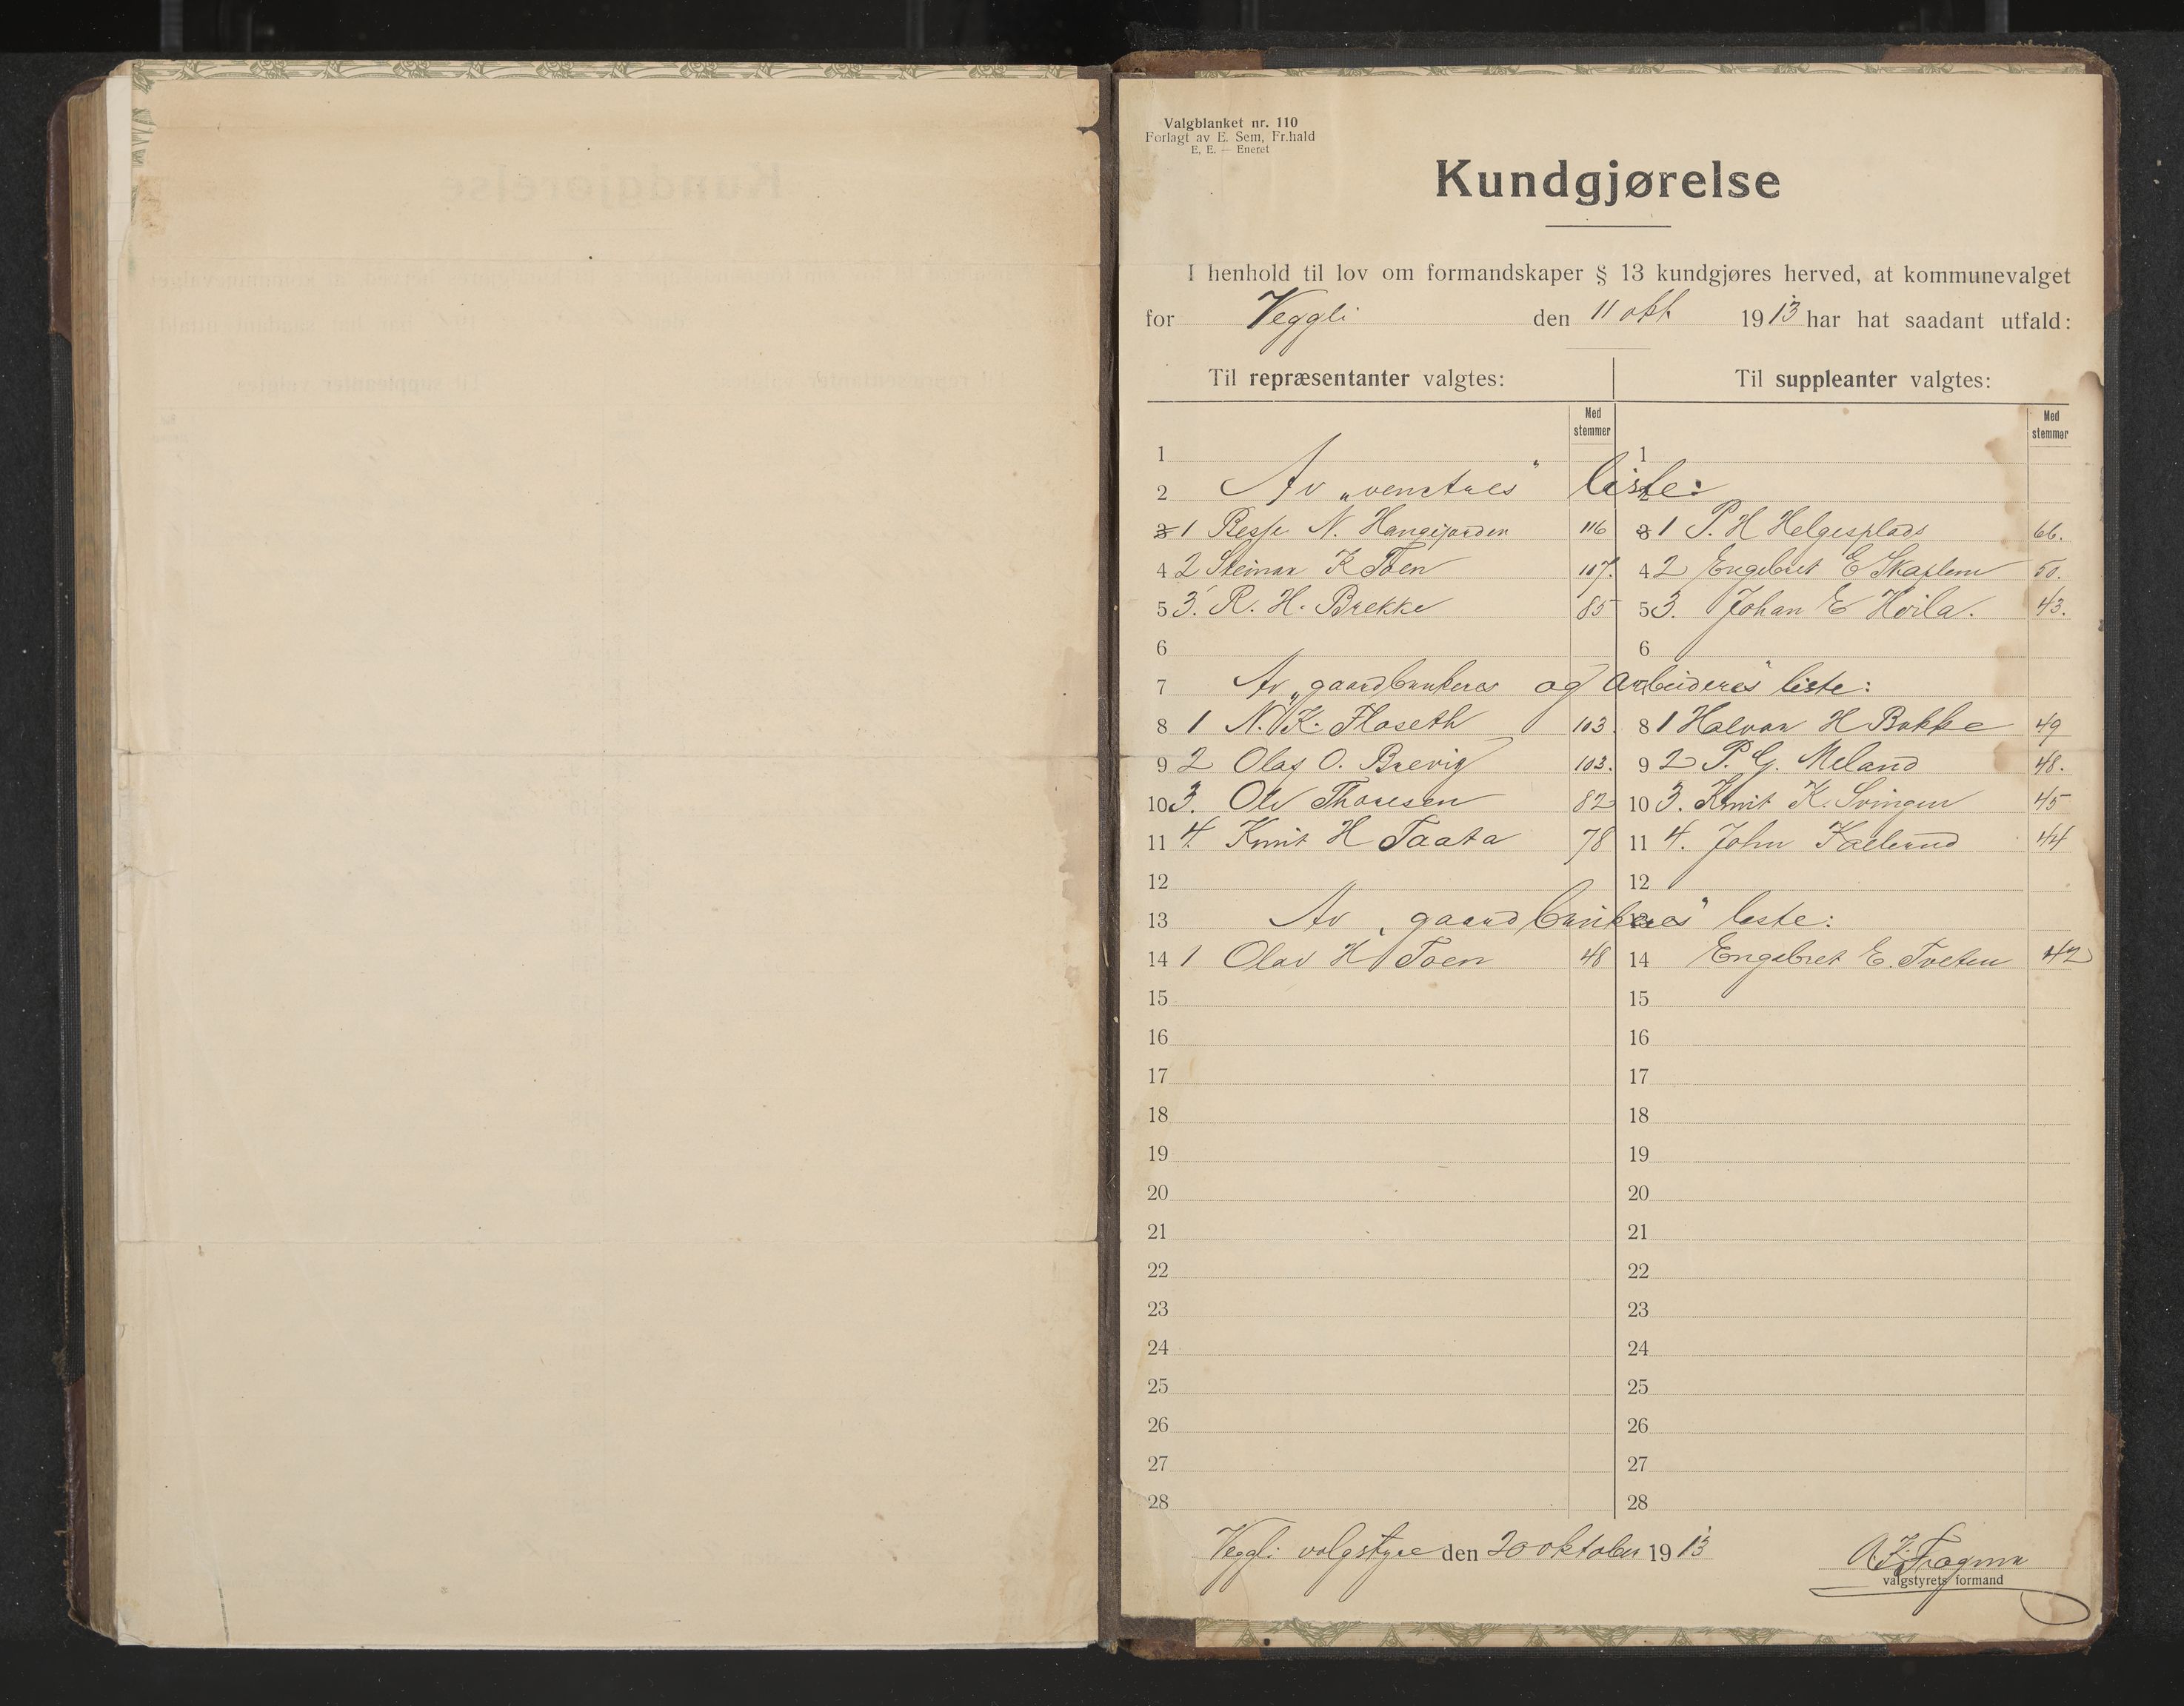 Valgblanket nr. 110
Forlagt av E. Sem, Fr.hald
E. E. — Eneret
Kundgjørelse
I henhold til lov om formandskaper § 13 kundgjøres herved, at kommunevalget
for Veggli den 11 okt 1913 har hat saadant utfald:
Til repræsentanter valgtes: Til suppleanter valgtes:
Med stemmer Med stemmer
1 1
2 Av „venstres" liste:
3 1 N. 116 3 1 P. H Helgesplads 66.
4 2 Steinar K Toen 107. 4 2 Engebret E Skaplem 50.
5 3. R. H. Brekke 85 5 3. Johan E Hvila. 43.
6 6
7 Av „gaardbrukeres og Arbeideres" liste:
8 1 N. K. Floseth 103. 8 1 Halvor H Bakke 49
9 2 Olaf O. Brevig 103. 9 2 P. G. Meland 48.
10 3. Ole Thoresen 82 10 3. Knut K. Svingen 45
11 4. Knut H Taata 78 11 4. John Kallerud 44
12 12
13 Av „gaardbrukeres" liste:
14 1 Olav H Toen 48 14 Engebret E. Tveten 42
15 15
16 16
17 17
18 18
19 19
20 20
21 21
22 22
23 23
24 24
25 25
26 26
27 27
28 28
Veggli valgstyre den 20 oktober 1913
valgstyrets formand